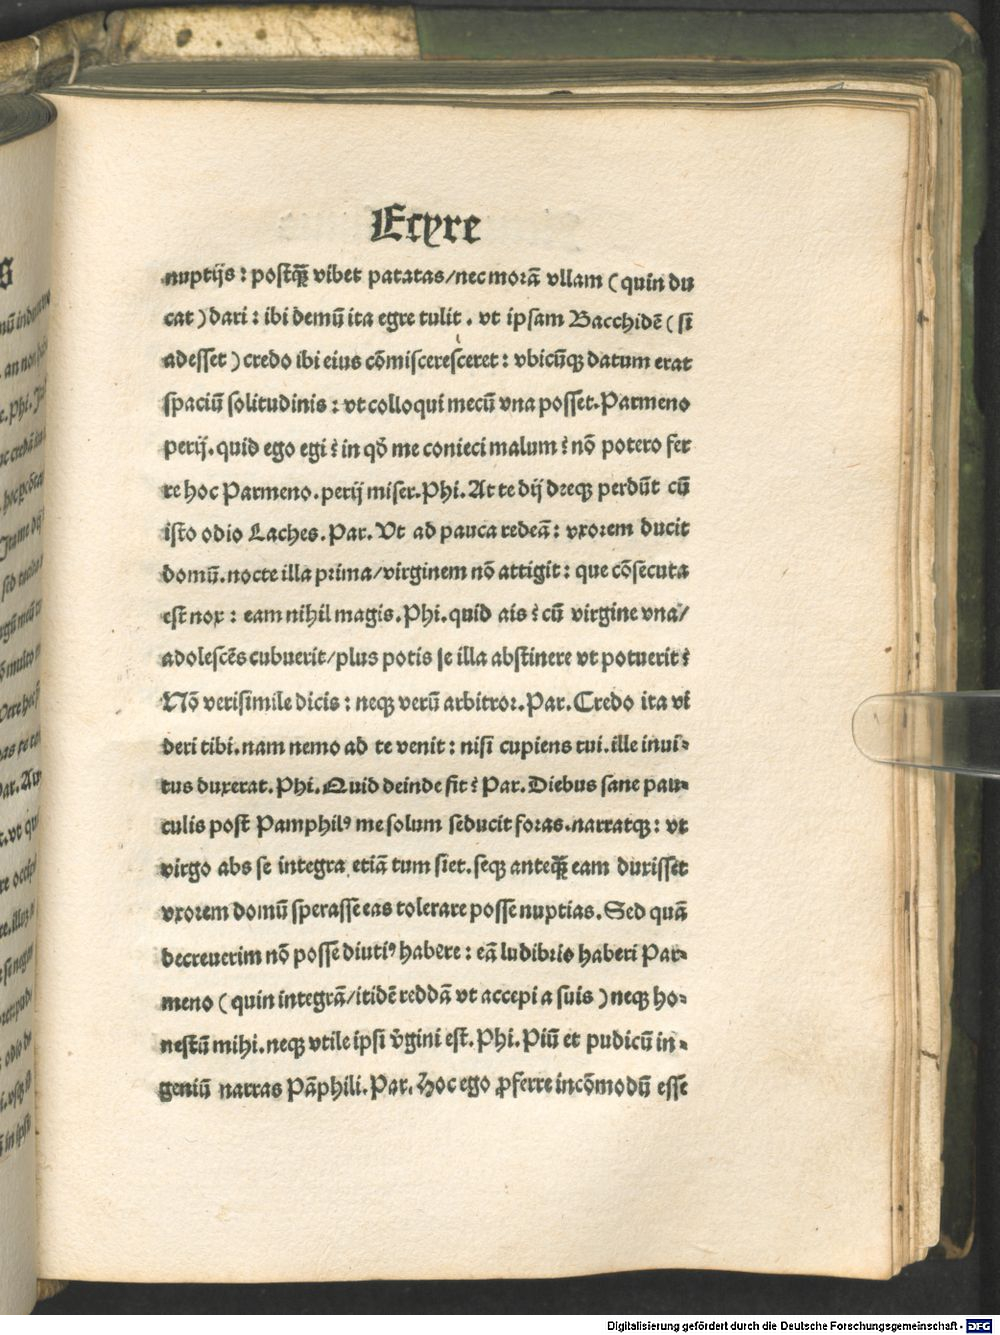 Ecyre
nuptijs : postq̃ꝫ vibet patatas/nec morã vllam ( quin du
cat ) dari : ibi demũ ita egre tulit . vt ipsam Bacchidẽ ( si
adesset ) credo ibi eius cõmisceresceret : vbicũqꝫ datum erat
spaciũ solitudinis : vt colloqui mecũ vna posset. Parmeno
perij. quid ego egi? in qð me conieci malum? nõ potero fer
re hoc Parmeno. perij miser. Phi. At te dij deeqꝫ perdũt cũ
isto odio Laches. Par. Vt ad pauca redeã : vxorem ducit
domũ. nocte illa prima/virginem nõ attigit : que cõsecuta
est nox : eam nihil magis. Phi. quid ais? cũ virgine vna/
adolescẽs cubuerit/plus potis se illa abstinere vt potuerit?
Nõ verisimile dicis : neqꝫ verũ arbitror. Par. Credo ita vi
deri tibi. nam nemo ad te venit : nisi cupiens tui. ille inui-
tus duxerat. Phi. Quid deinde fit? Par. Diebus sane pau-
culis post Pamphilꝰ me solum seducit foras. narratqꝫ : vt
virgo abs se integra etiã tum siet. seqꝫ anteq̃ꝫ eam duxisset
vxorem domũ sperasse eas tolerare posse nuptias. Sed quã
decreuerim nõ posse diutiꝰ habere : eã ludibrio haberi Par-
meno ( quin integrã/itidẽ reddã vt accepi a suis ) neqꝫ ho-
nestũ mihi. neqꝫ vtile ipsi v̾gini est. Phi. Piũ et pudicũ in-
geniũ narras Pãphili. Par. Hoc ego ꝓferre incõmodũ esse
Digitalisierung gefördert durch die Deutsche Forschungsgemeinschaft - DFG